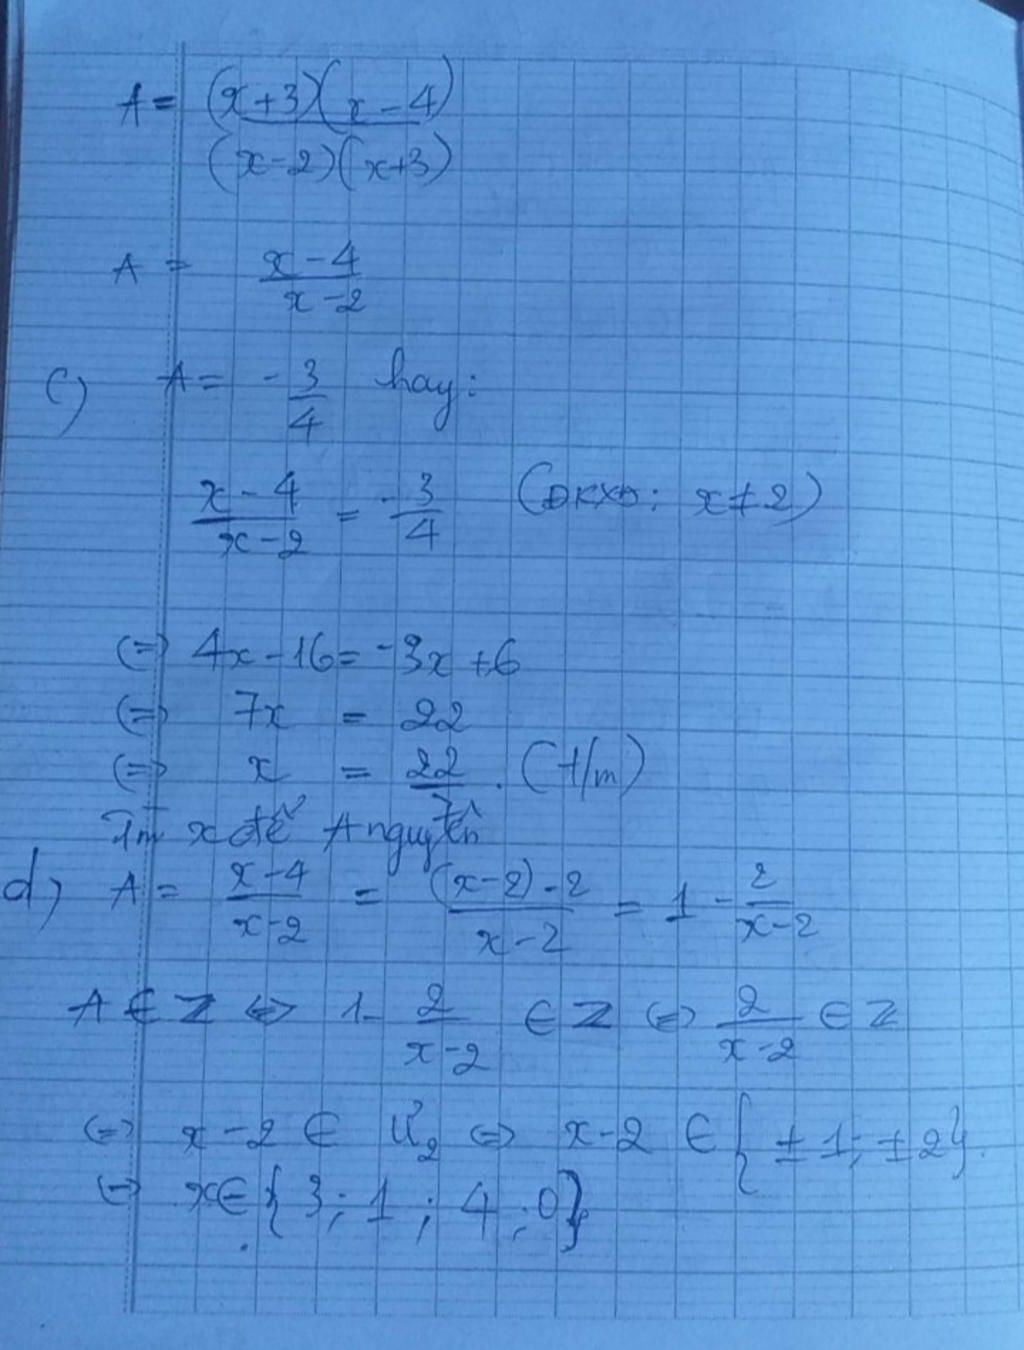 A = (x+3)(x-4) / (x-2)(x+3)
A = x-4 / x-2
c) A = -3/4 hay:
x-4 / x-2 = -3/4 (ĐKXĐ: x≠2)
(=) 4x-16=-3x+6
(=) 7x = 22
(=) x = 22/7. (t/m)
Tìm x để A nguyên
d) A = x-4 / x-2 = (x-2)-2 / x-2 = 1 - 2 / x-2
A ∈ Z (=) 1- 2 / x-2 ∈ Z (=) 2 / x-2 ∈ Z
(=) x-2 ∈ Ư₂ (=) x-2 ∈ {±1; ±2}.
(=) x∈{3; 1; 4; 0}